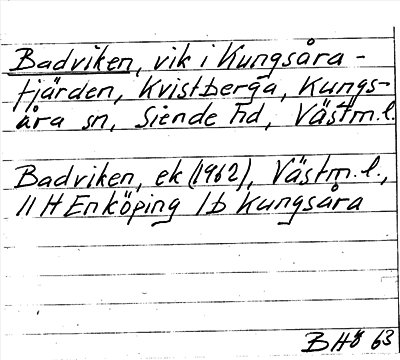 Badviken, vik i Kungsåra-
fjärden, Kvistberga, Kungs-
åra sn, Siende hd, Västm.l.
Badviken, ek (1962), Västm.l.,
11 H Enköping 1b Kungsåra
BHö 63